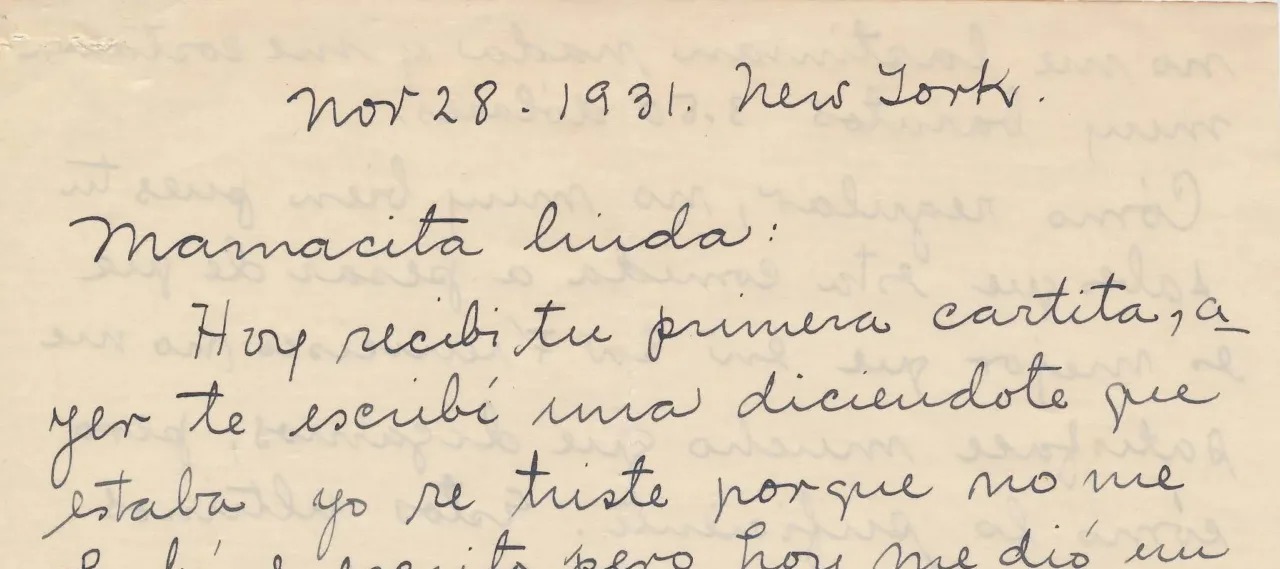 Nov 28. 1931. New York.
Mamacita linda:
Hoy recibi tu primera cartita, a
yer te escribí una diciendote que
estaba yo re triste porque no me
pero hoy me dió un